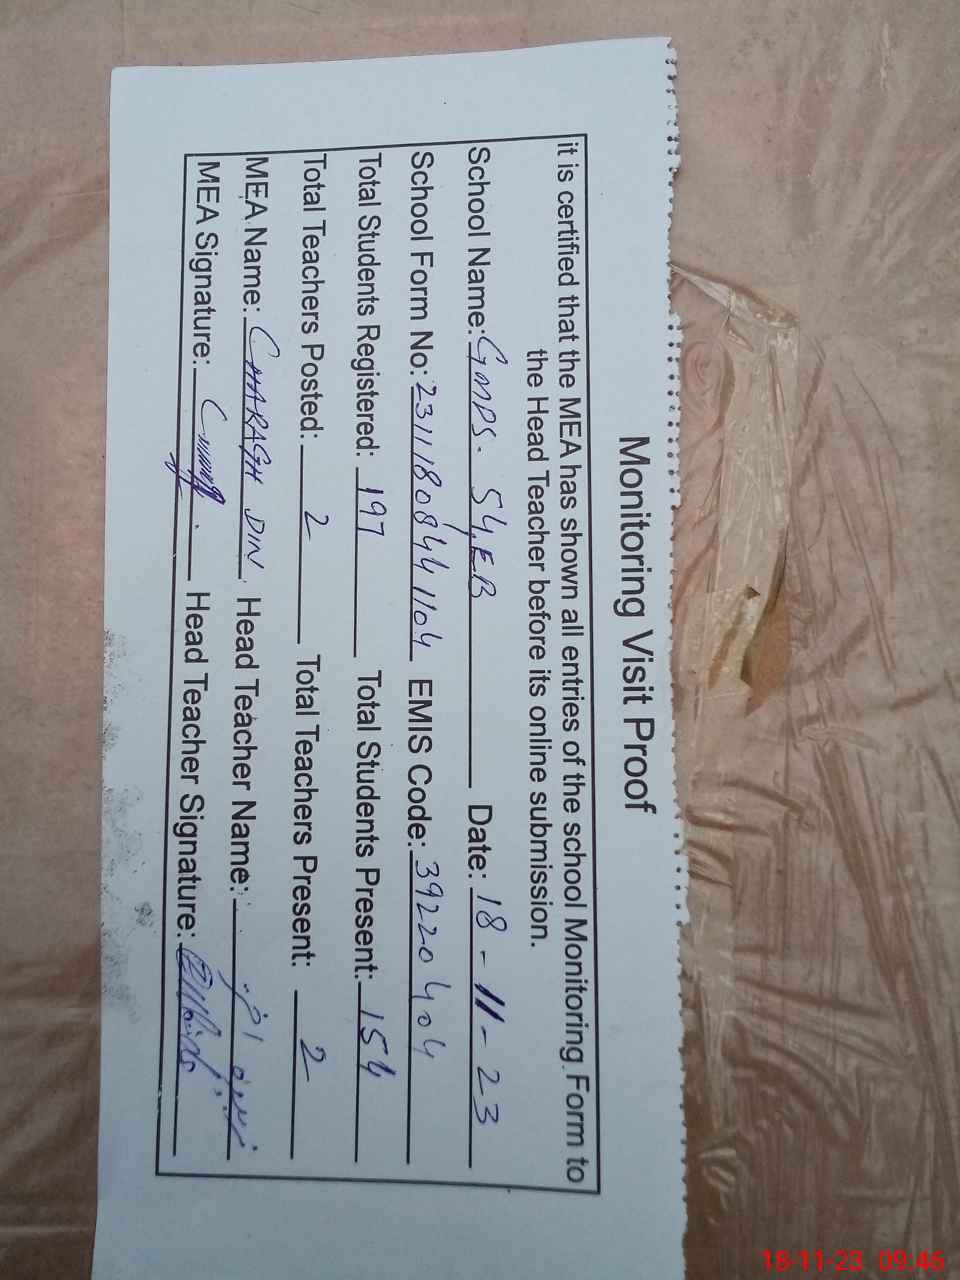 Monitoring Visit Proof
it is certified that the MEA has shown all entries of the school Monitoring Form to
the Head Teacher before its online submission.
School Name: GMPS. 54,EB Date: 18-11-23
School Form No: 23111808441104 EMIS Code: 39220404
Total Students Registered: 197 Total Students Present: 154
Total Teachers Posted: 2 Total Teachers Present: 2
MEA Name: CHARAGH DIN. Head Teacher Name:
MEA Signature: Head Teacher Signature:
18-11-23 09:46